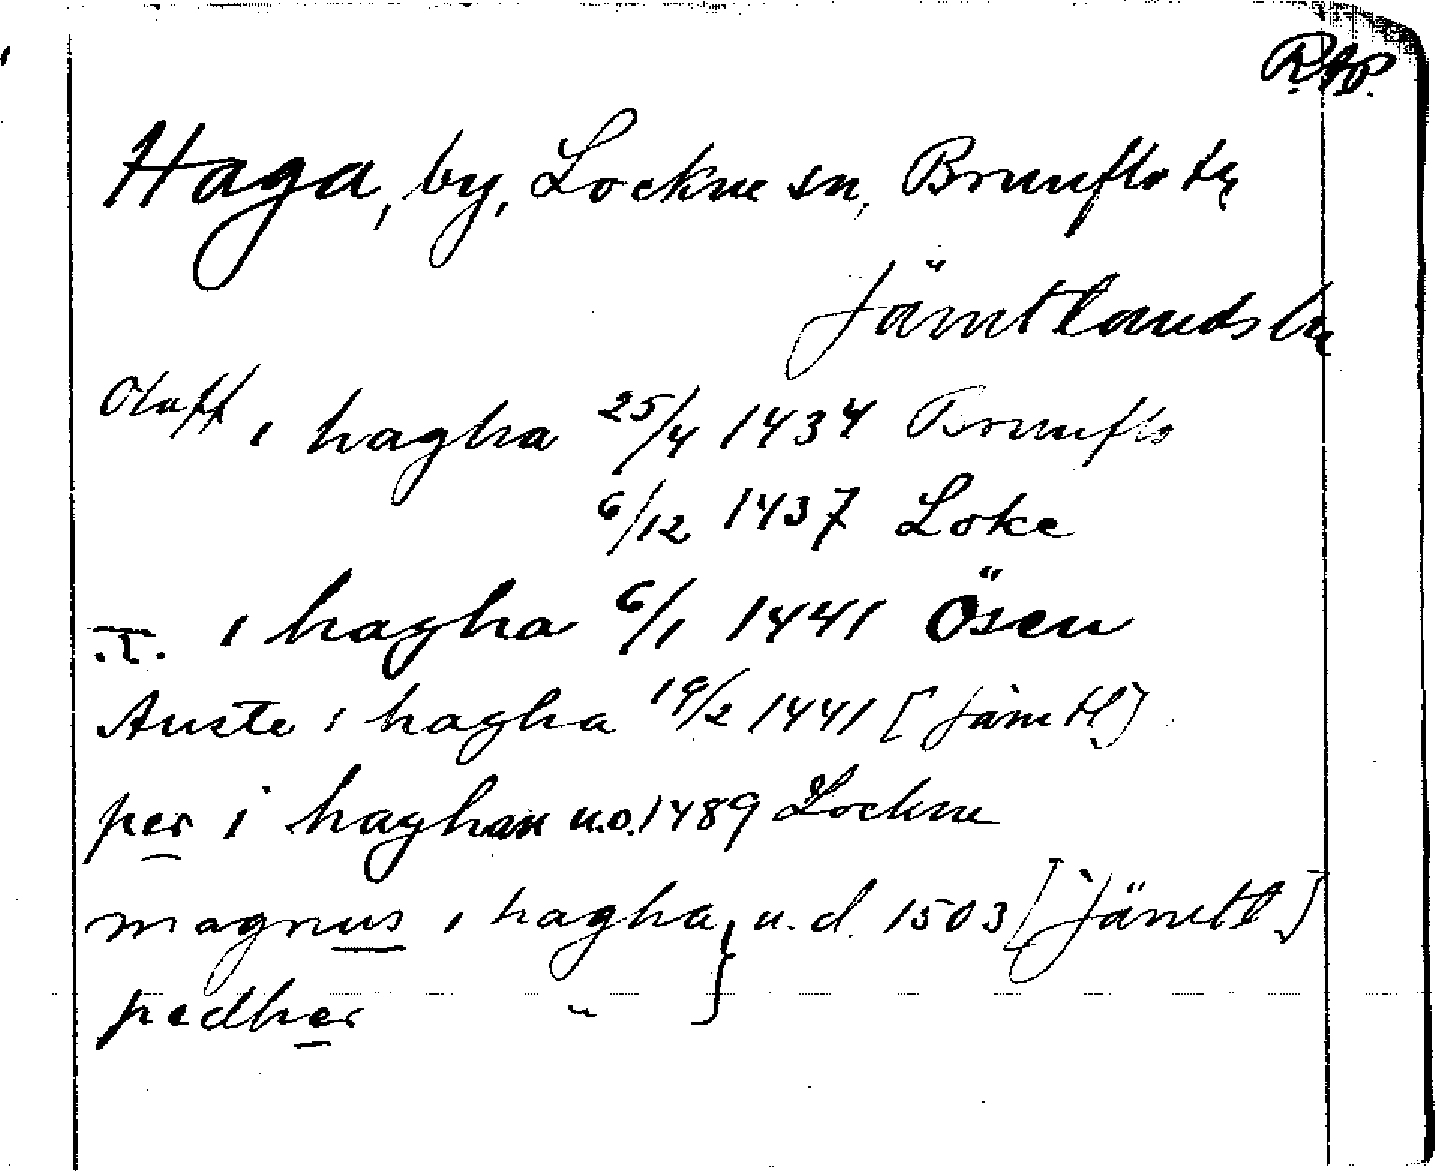 RAP.
Haga, by, Lockne sn, Brunflo tg
Jämtlands län
Olaff i hagha 25/4 1434 Brunflo
6/12 1437 Loke
.T. i hagha 6/1 1441 Ösen
Auste i hagha 19/2 1441 [Jämtl]
per i haghan u.o. 1489 Lockne
magnus i hagha } u.d. 1503 [Jämtl]
pedher " }